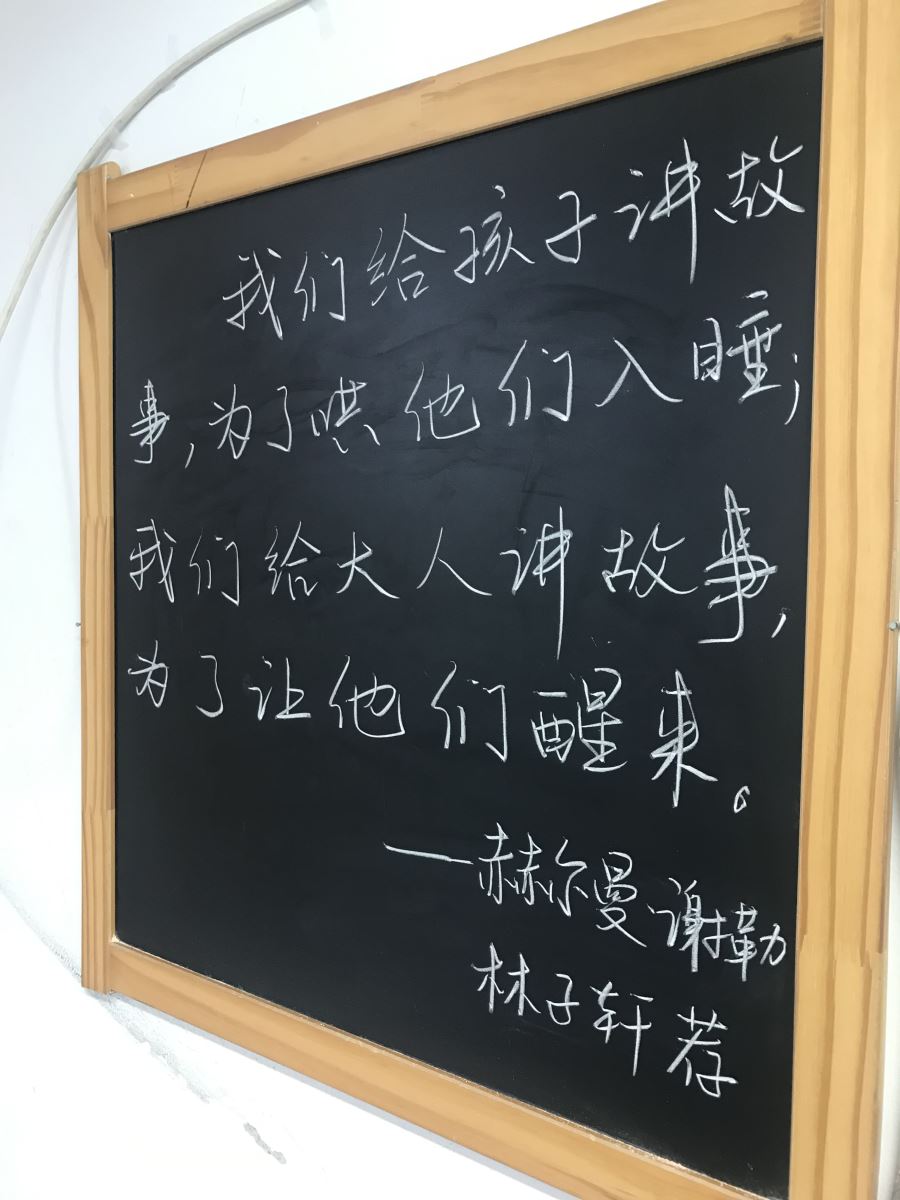 我们给孩子讲故
事,为了哄他们入睡;
我们给大人讲故事,
为了让他们醒来。
——赫尔曼·谢勒
林子轩荐